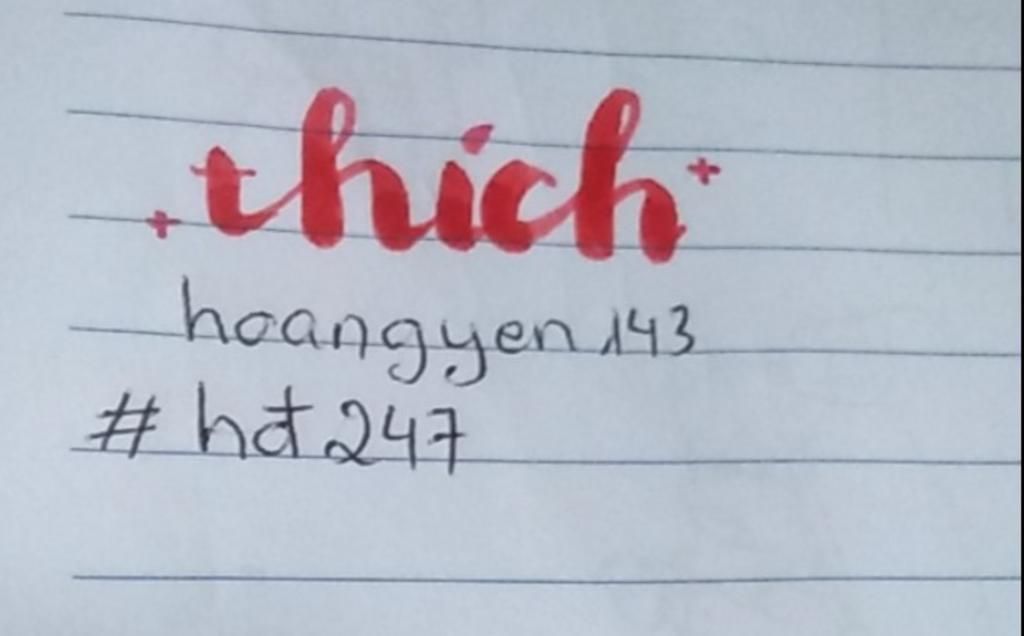 thích
hoangyen143
# hđ247